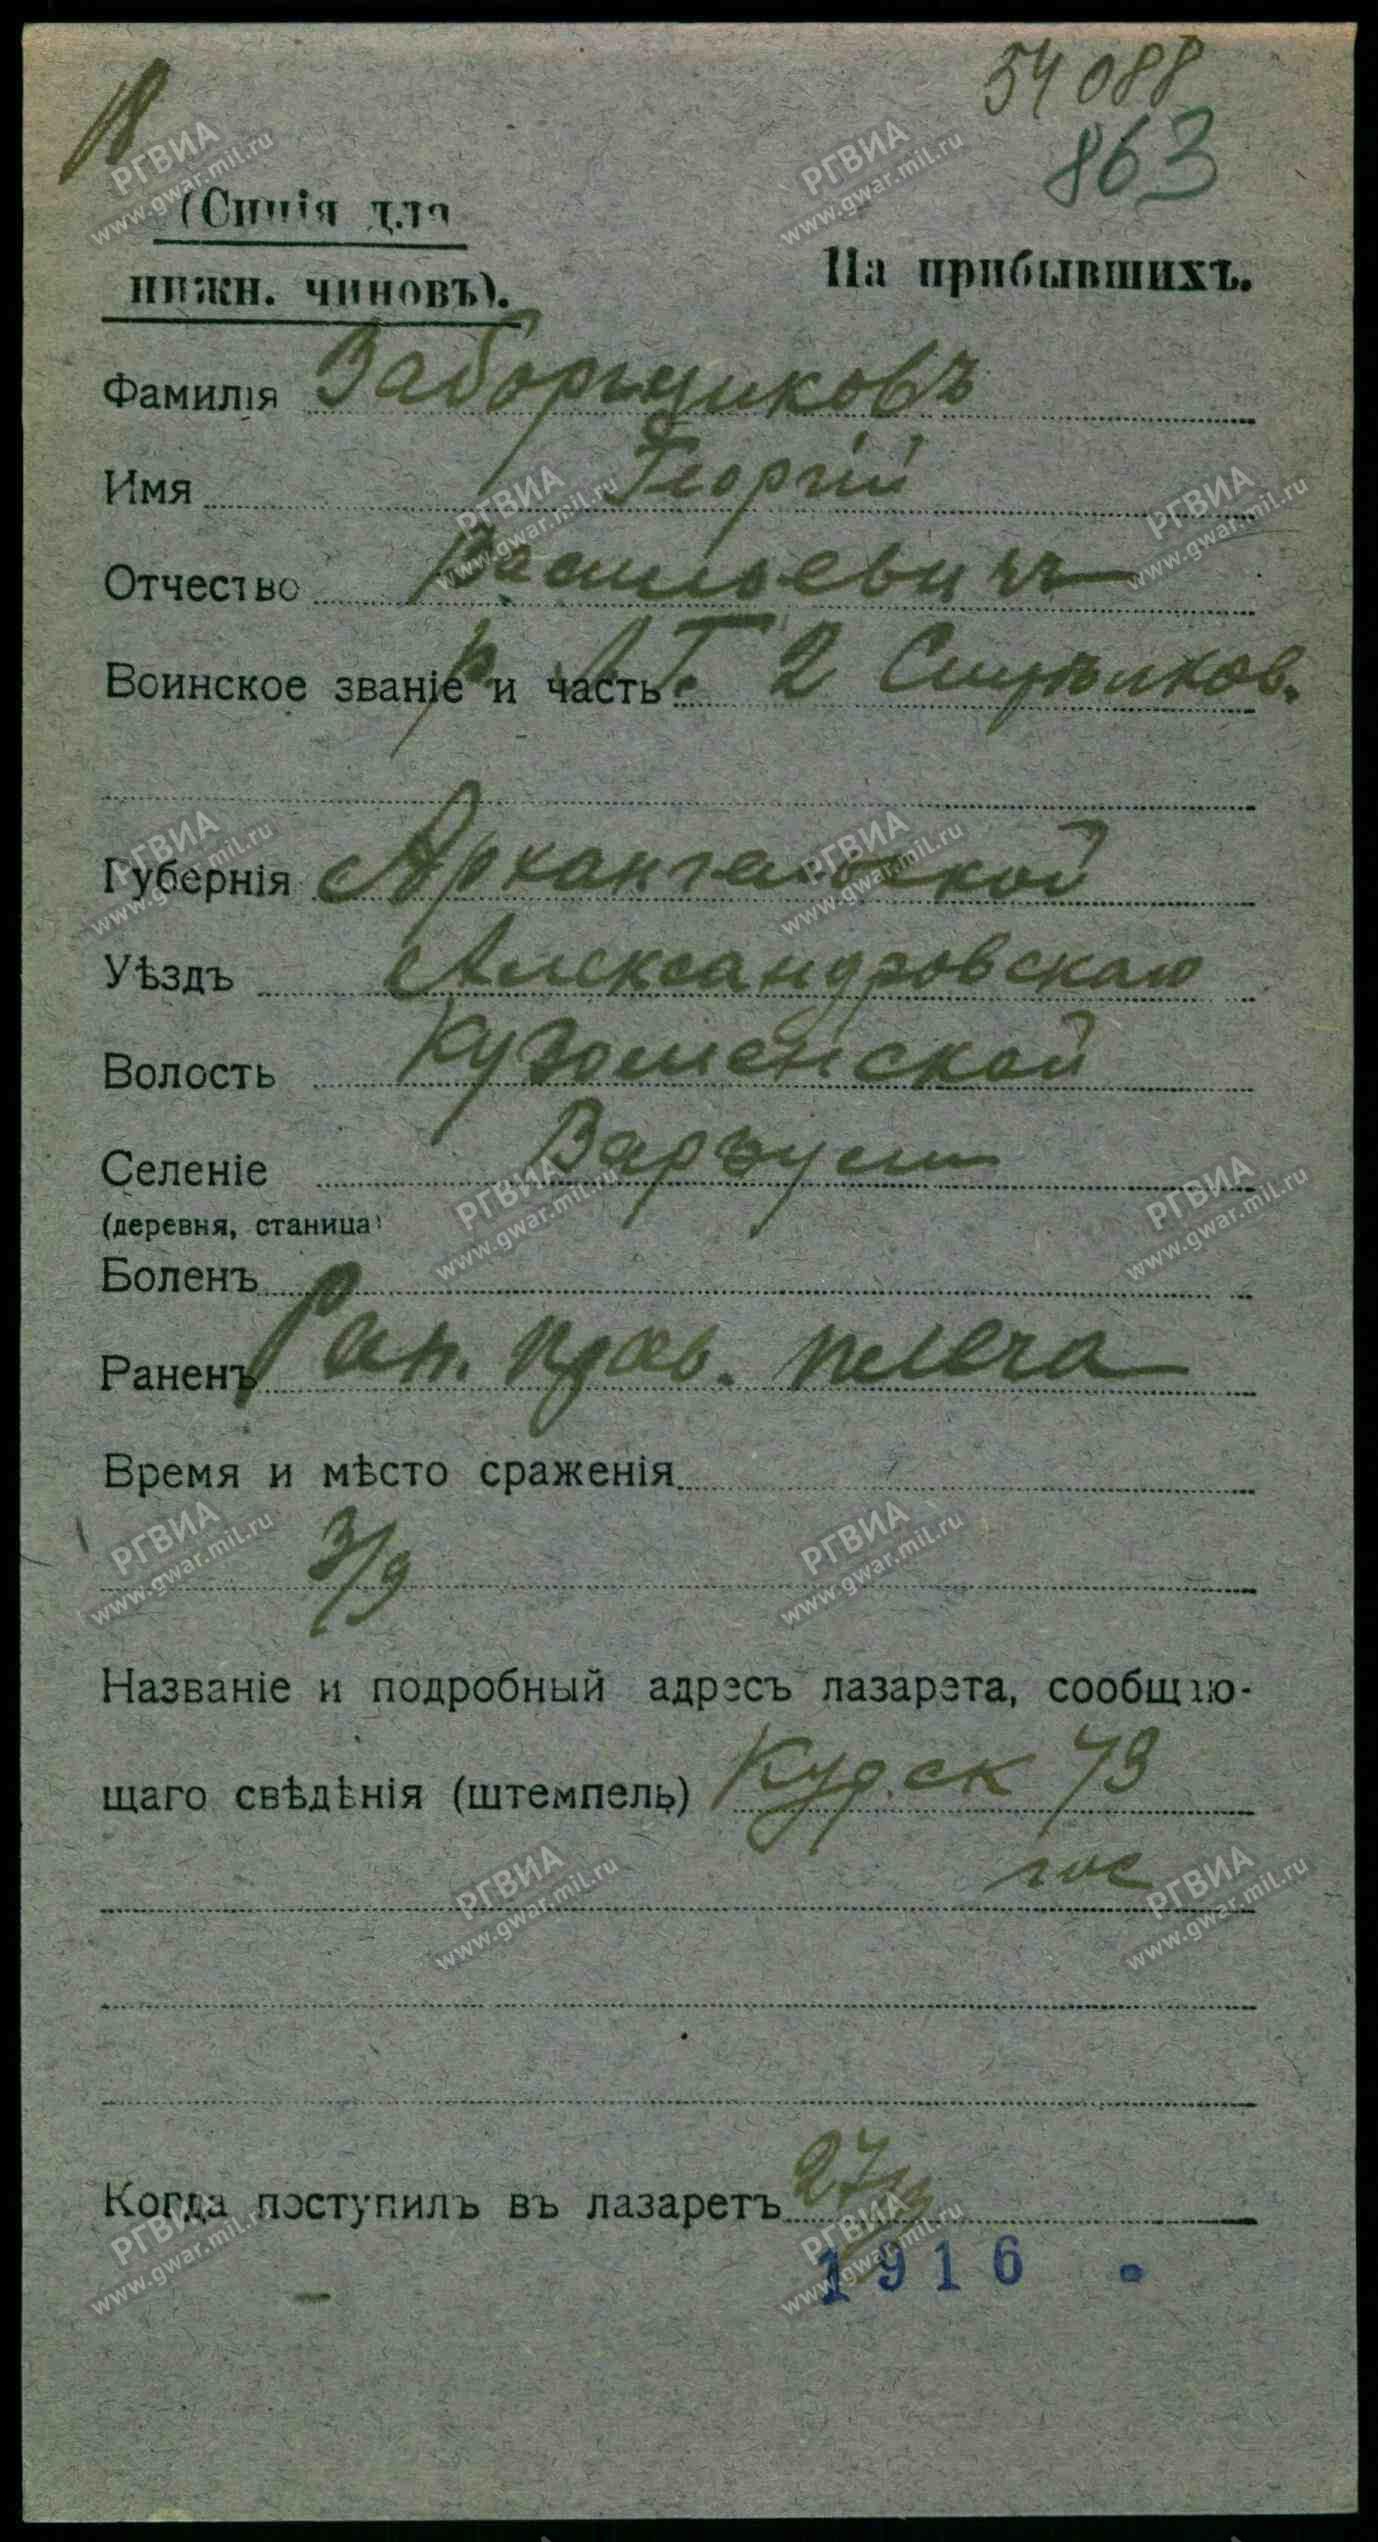 54 088
863
(Синія для
нижн. чиновъ).
На прибывшихъ.
Фамилія Заборщиковъ
Имя Георгій
Отчество Васильевичъ
Воинское званіе и часть р. Л. Г. 2
Губернія Архангельской
Уѣздъ Александровскаго
Волость Кузоменской
Селеніе
(деревня, станица)
Боленъ
Раненъ Ран. прав. плеча
Время и мѣсто сраженія
3/9
Названіе и подробный адресъ лазарета, сообщаю-
щаго свѣдѣнія (штемпель) Курск 73
гос
Когда поступилъ въ лазаретъ 27/9
1916
РГВИА
www.gwar.mil.ru